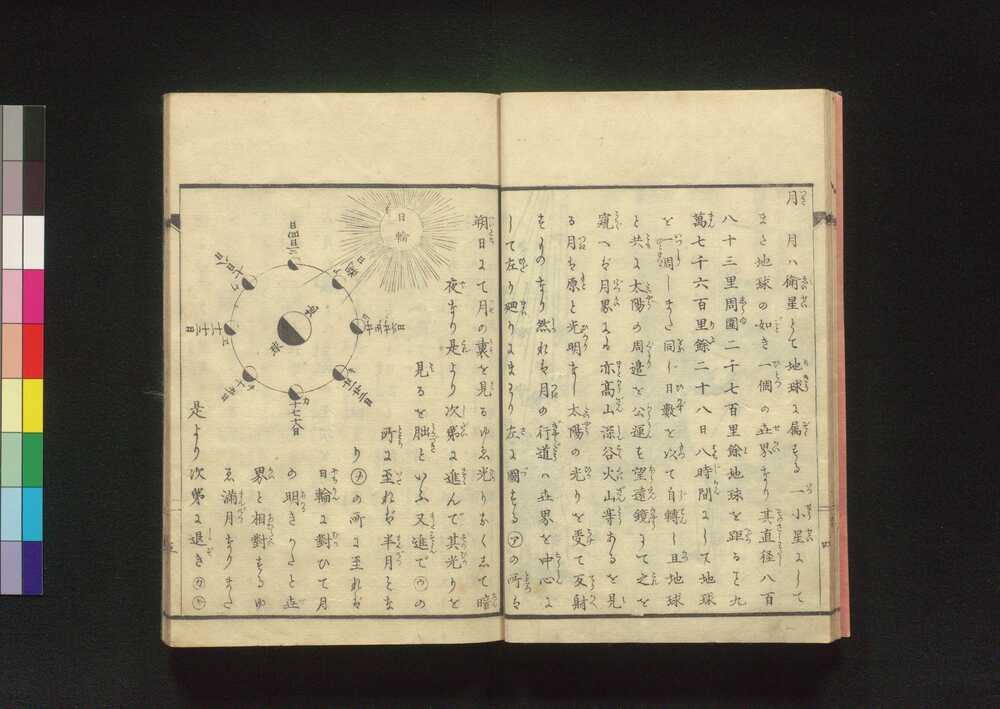 月 月ハ衛星とて地球に属する一小星にして
また地球の如き一個の世界なり其直径八百
八十三里周圍二千七百里餘地球を距ること九
萬七千六百里餘二十八日八時間にして地球
を一周しまた同じ日數を以て自轉し且地球
と共に太陽の周邉を公運す望遠鏡にて之を
窺へバ月界にも亦高山深谷火山等あるを見
る月ハ原と光明なし太陽の光りを受て反射
するものなり然れバ月の行道ハ世界を中心に
して左り廻りにまはり左に圖する㋐の所ハ
朔日にて月の裏を見るゆゑ光りなくして暗
夜なり是より次第に進んで其光りを
見るを朏といふ又進で㋒の
所に至れバ半月とな
り㋔の所に至れバ
日輪に對ひて月
の明きかたと世
界と相對するゆ
ゑ滿月なりまた
是より次第に退き㋕㋖
日輪
地球
十五日
四
五